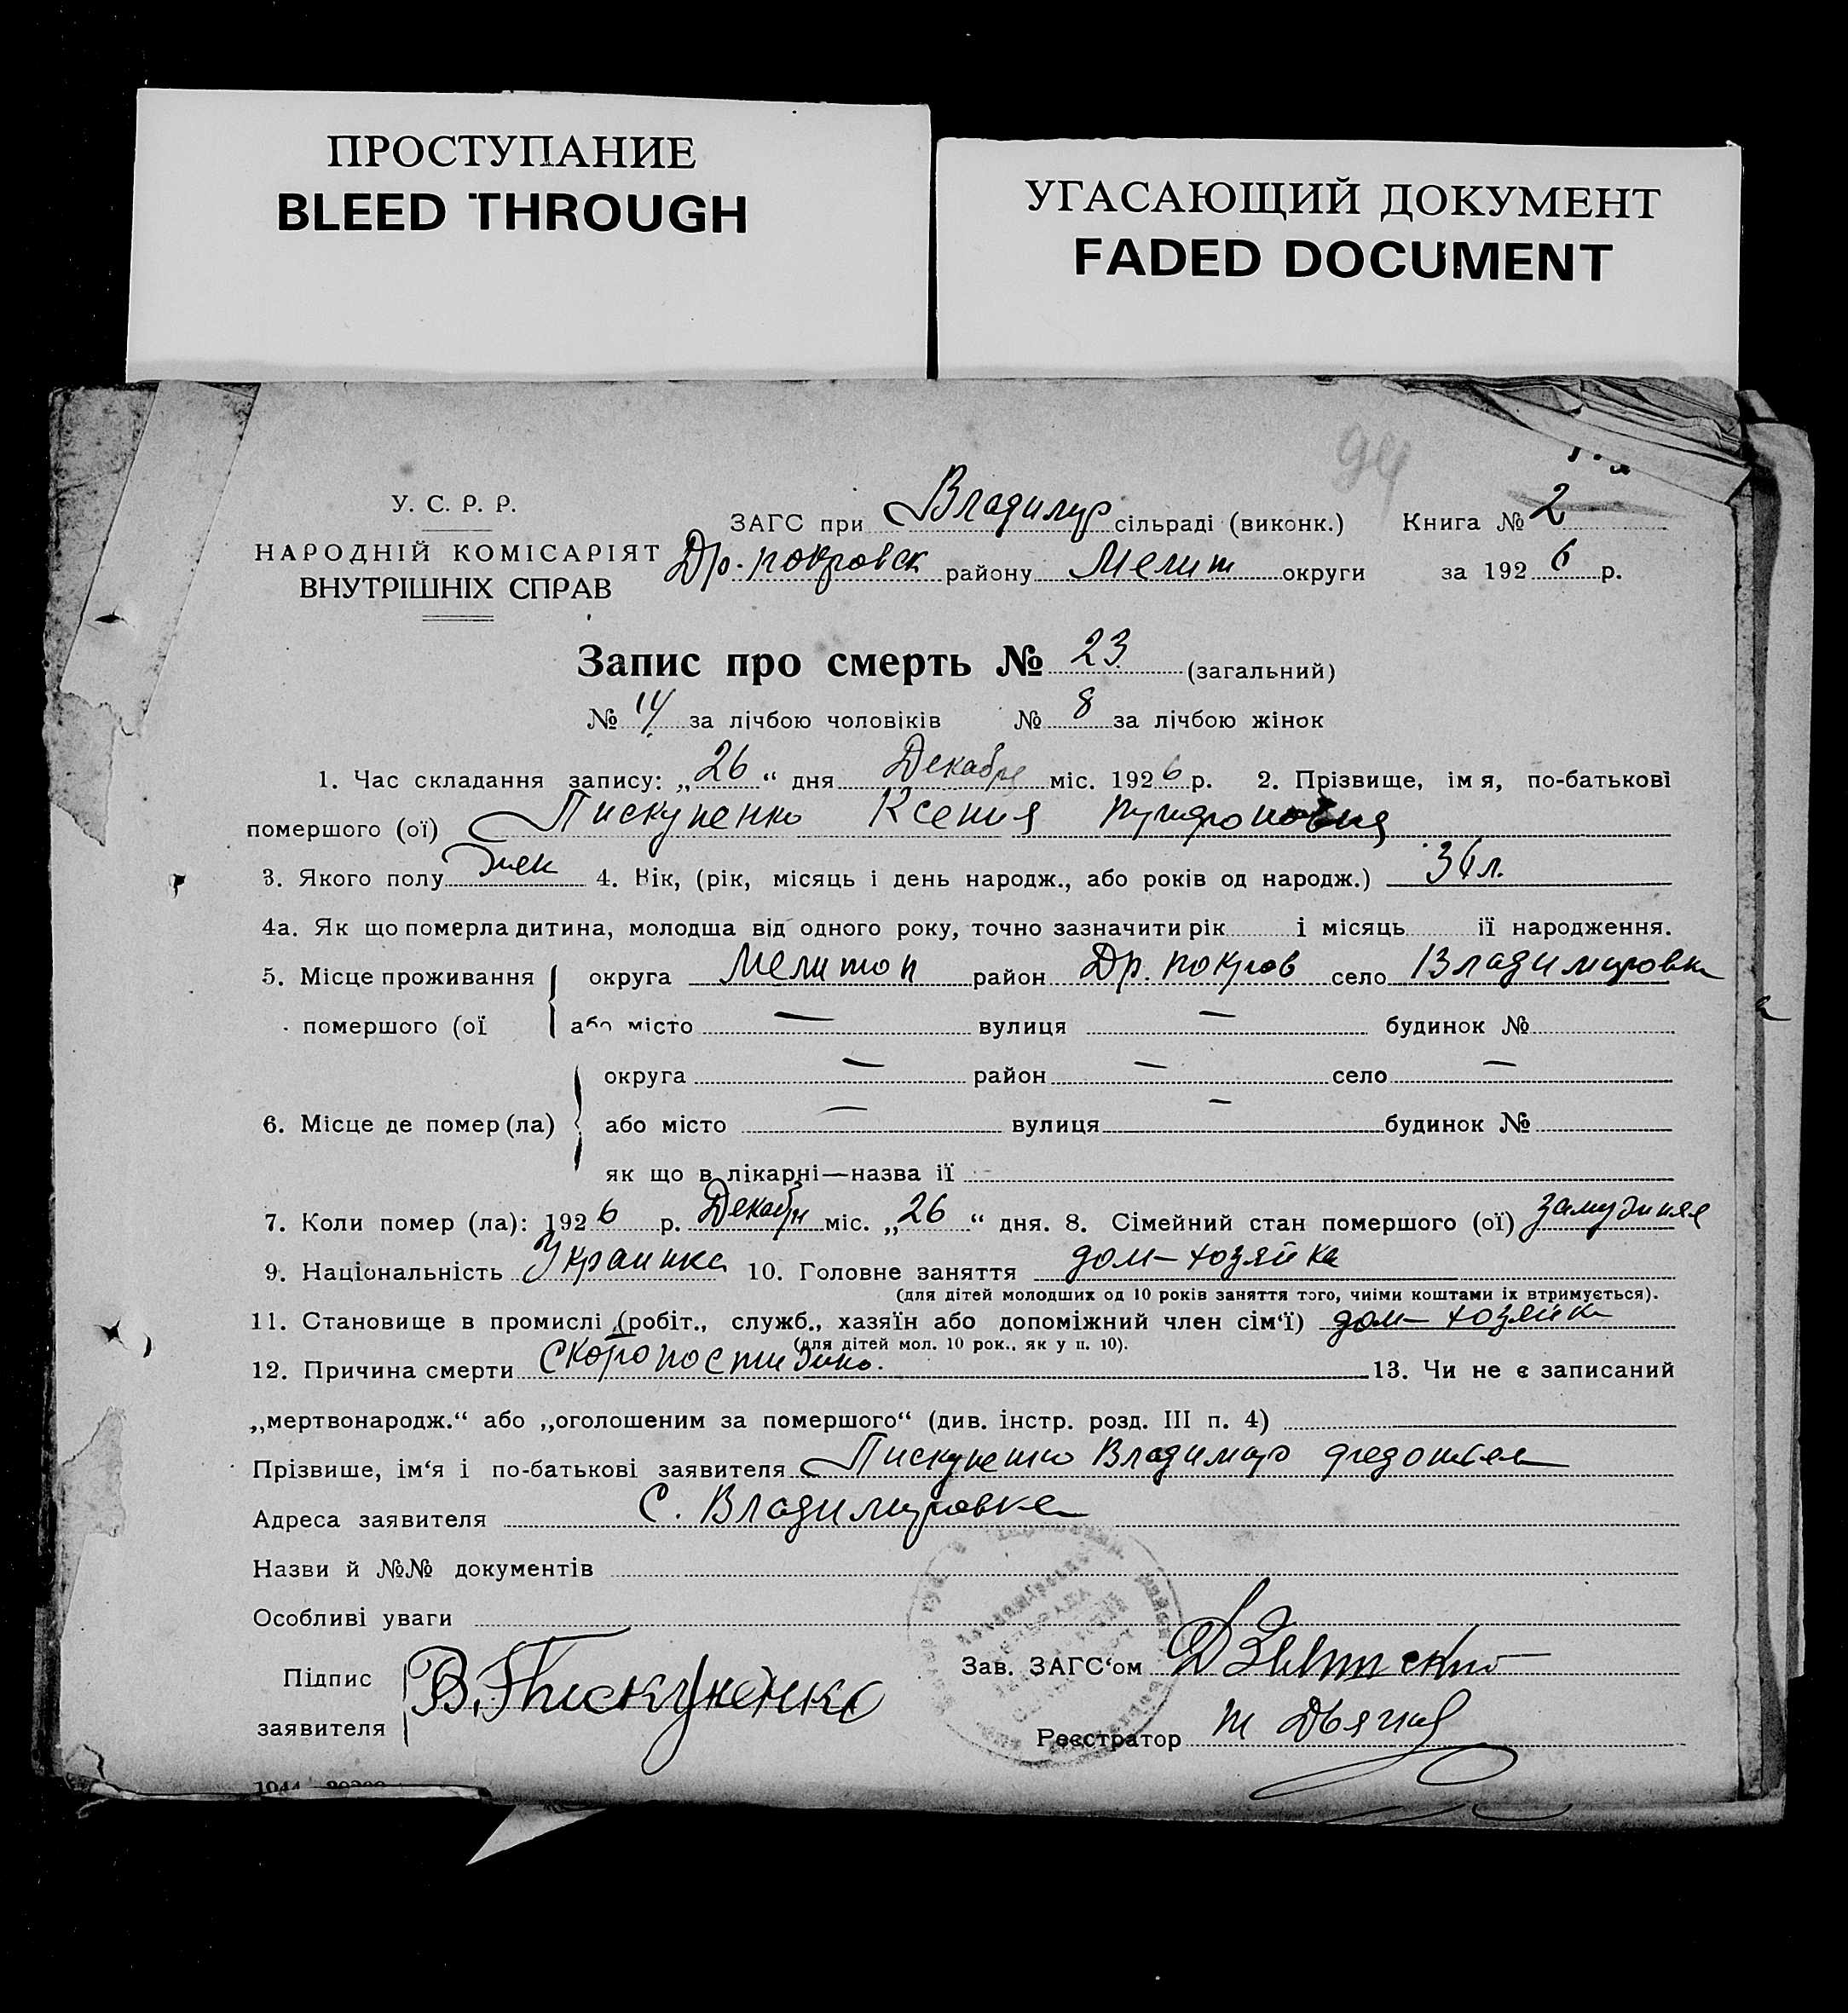 ПРОСТУПАНИЕ
BLEED THROUGH
УГАСАЮЩИЙ ДОКУМЕНТ
FADED DOCUMENT
94
У. С. Р. Р.
НАРОДНІЙ КОМІСАРІЯТ
ВНУТРІШНІХ СПРАВ
ЗАГС при Владимир сільраді (виконк.) Книга № 2
Др. покровск району Мелит округи за 1926 р.
Запис про смерть № 23 (загальний)
№ 14 за лічбою чоловіків № 8 за лічбою жінок
1. Час складання запису: „26“ дня Декабря міс. 1926 р. 2. Прізвище, імя, по-батькові
помершого (ої) Пискуненко Ксения
3. Якого полу жен 4. Вік, (рік, місяць і день народж., або років од народж.) 36 л.
4а. Як що померла дитина, молодша від одного року, точно зазначити рік і місяць її народження.
5. Місце проживання округа Мелитоп район Др. покров село Владимировка
помершого (ої або місто — вулиця — будинок №
округа — район — село —
6. Місце де помер (ла) або місто — вулиця — будинок №
як що в лікарні—назва її
7. Коли помер (ла): 1926 р. Декабря міс. „26“ дня. 8. Сімейний стан помершого (ої) замужняя
9. Національність Украинка 10. Головне заняття дом-хозяйка
(для дітей молодших од 10 років заняття того, чиїми коштами їх втримується).
11. Становище в промислі (робіт., служб., хазяїн або допоміжний член сім'ї) дом-хозяйка
(для дітей мол. 10 рок., як у п. 10).
12. Причина смерти скоропостижно. 13. Чи не є записаний
„мертвонародж.“ або „оголошеним за помершого“ (див. інстр. розд. III п. 4)
Прізвише, ім'я і по-батькові заявителя Пискуненко Владимир
Адреса заявителя с. Владимировка
Назви й №№ документів
Особливі уваги
Підпис
заявителя
В. Пискуненко
Зав. ЗАГС'ом
Реєстратор